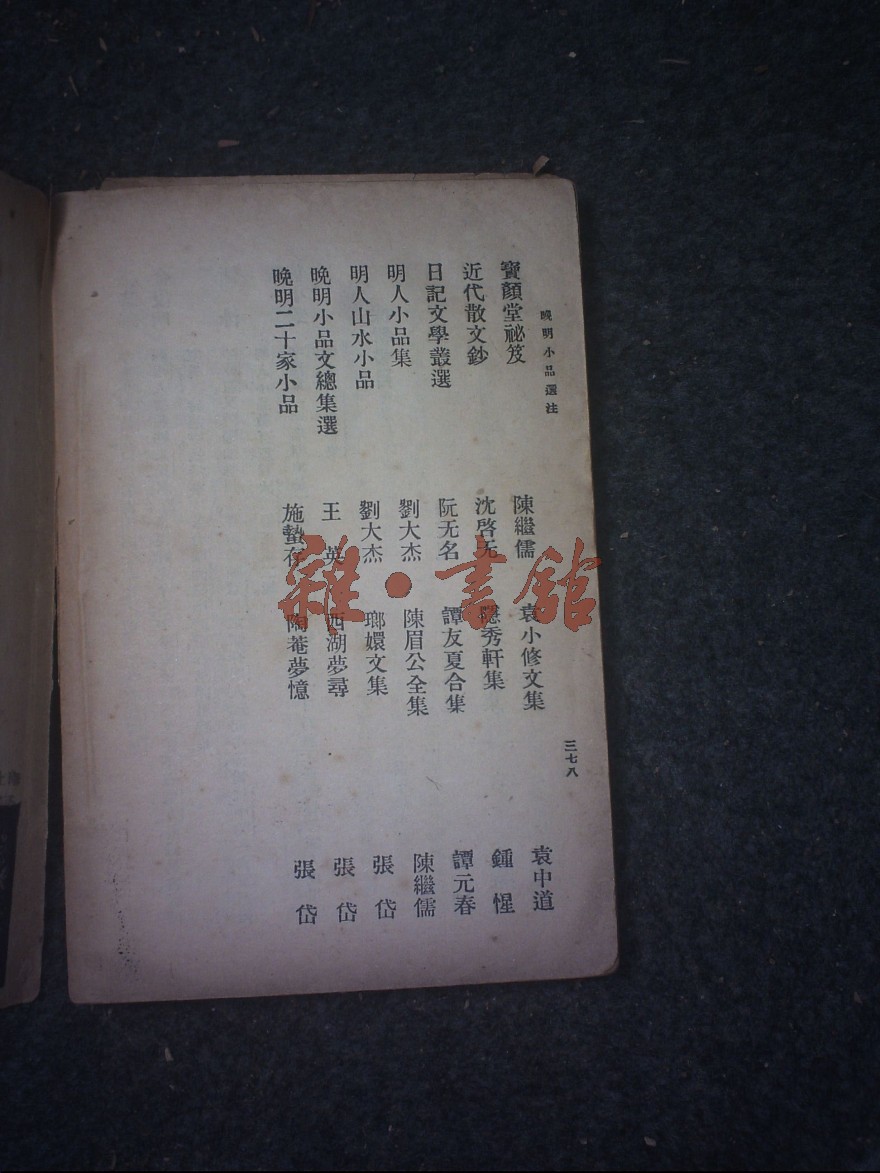 晚明小品選注
寶顏堂祕笈 陳繼儒 袁小修文集 袁中道
近代散文鈔 沈啓无 隱秀軒集 鍾惺
日記文學叢選 阮无名 譚友夏合集 譚元春
明人小品集 劉大杰 陳眉公全集 陳繼儒
明人山水小品 劉大杰 瑯嬛文集 張岱
晚明小品文總集選 王英 西湖夢尋 張岱
晚明二十家小品 施蟄存 陶菴夢憶 張岱
三七八
雜·書館